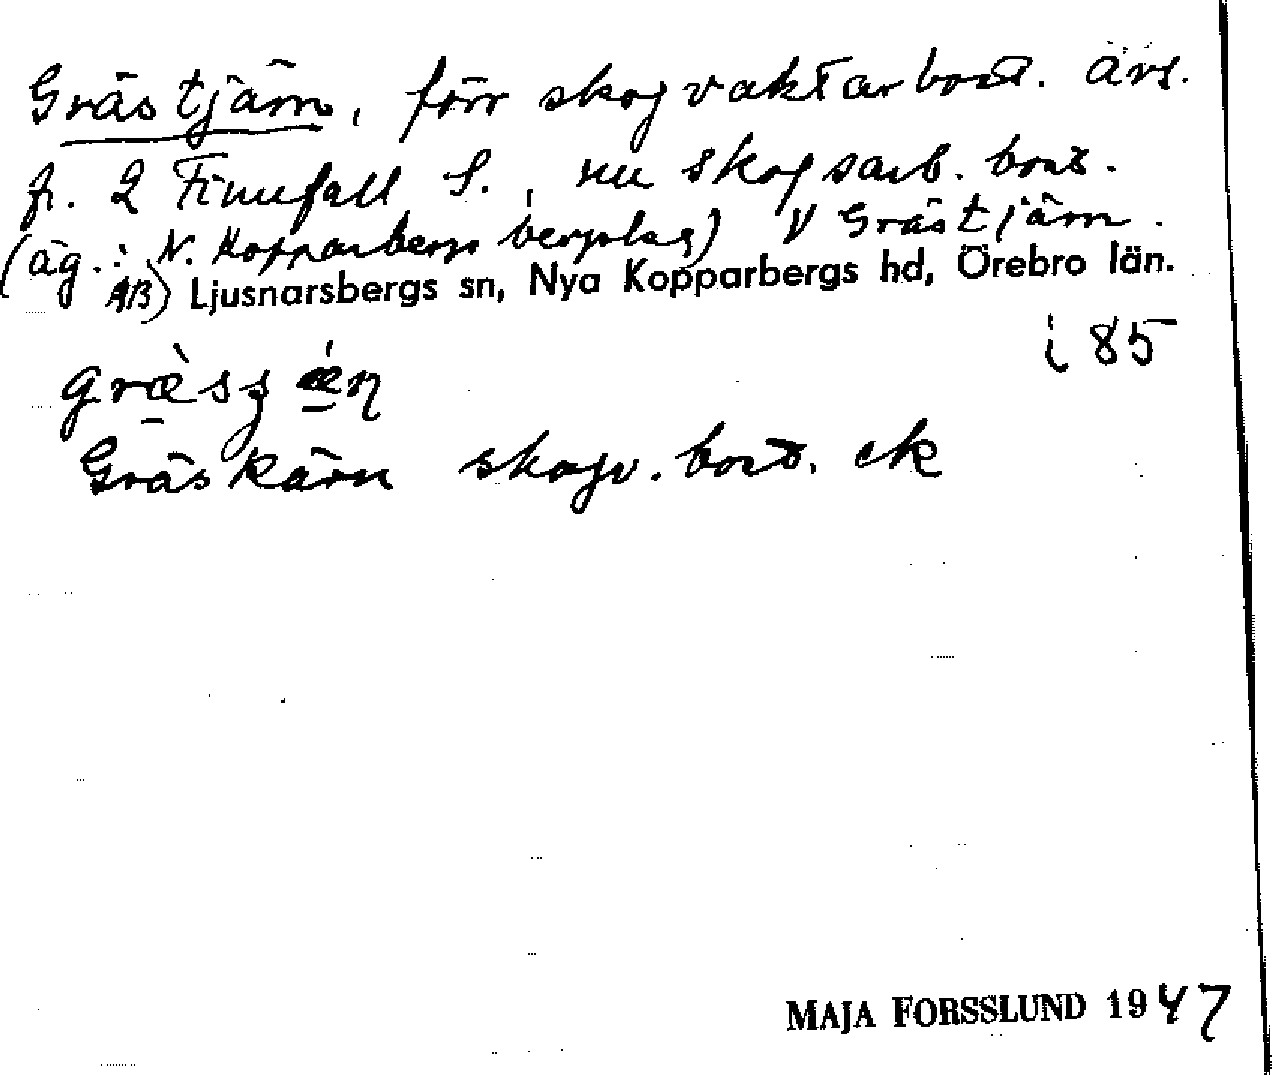 Grästjärn, förr skogvaktarbost. ävs.
fr. 2 Finnfall S., nu skogsarb. bost.
(äg.: N. Kopparbergs bergslag) V Grästjärn.
AB) Ljusnarsbergs sn, Nya Kopparbergs hd, Örebro län.
i 85
Gräskärn skogv. bost. ek
MAJA FORSSLUND 1947